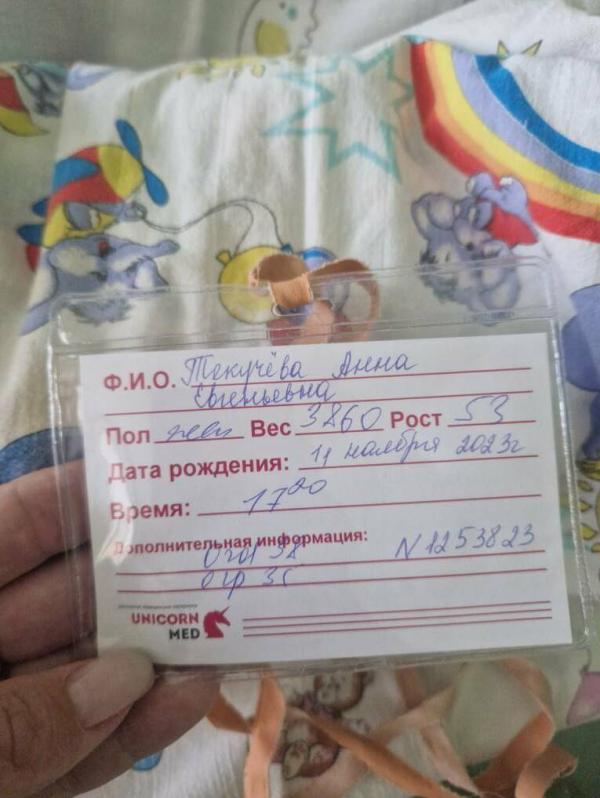 Ф.И.О. Текучёва Анна
Евгеньевна
Пол жен Вес 3860 Рост 53
Дата рождения: 11 ноября 2023г
Время: 17 20
Дополнительная информация:
N1253823
Огол 38
Огр 36
UNICORN
MED